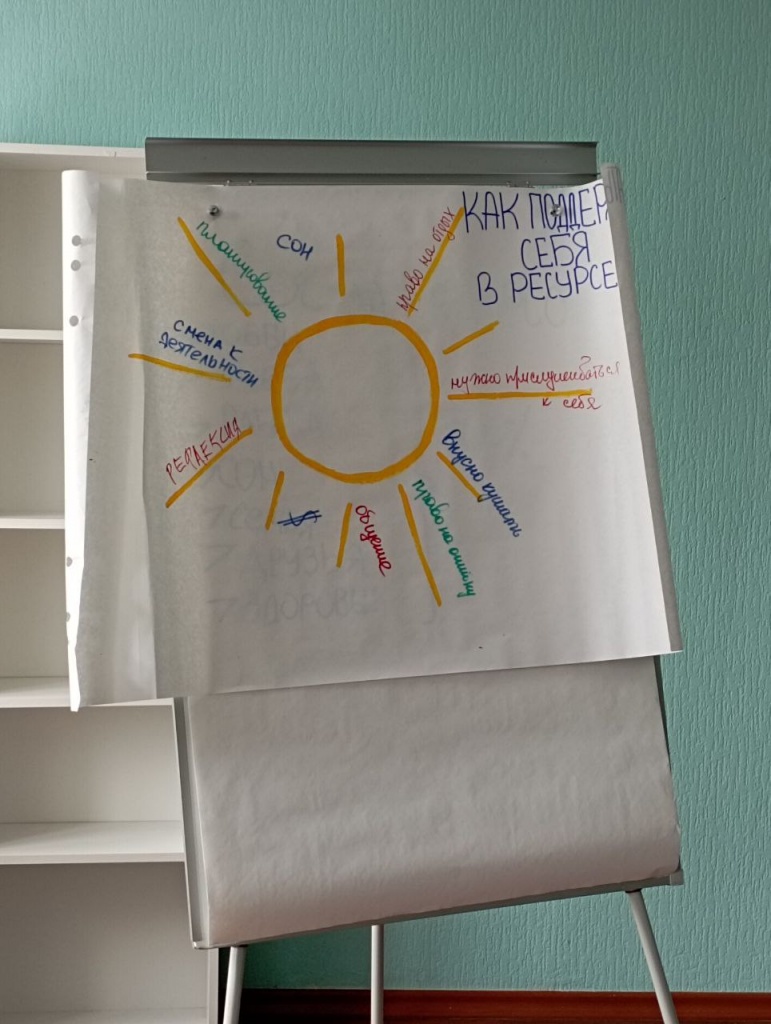 КАК ПОДДЕР
СЕБЯ
В РЕСУРСЕ
планирование
СОН
право на отдых
СМЕНА К
ДЕЯТЕЛЬНОСТИ
нужно прислушиваться
к себе
РЕФЛЕКСИЯ
вкусно кушать
$
общение
право на ошибку